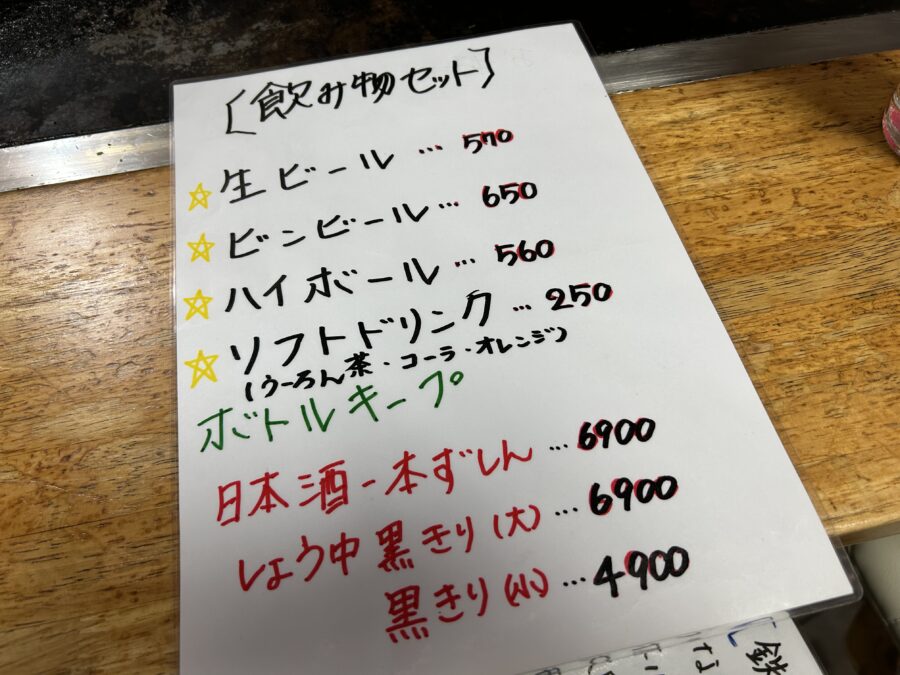 〔飲み物セット〕
☆生ビール … 570
☆ビンビール … 650
☆ハイボール … 560
☆ソフトドリンク … 250
(うーろん茶・コーラ・オレンジ)
ボトルキープ
日本酒一本ずしん … 6900
しょう中黒きり(大) … 6900
黒きり(小) … 4900
鉄